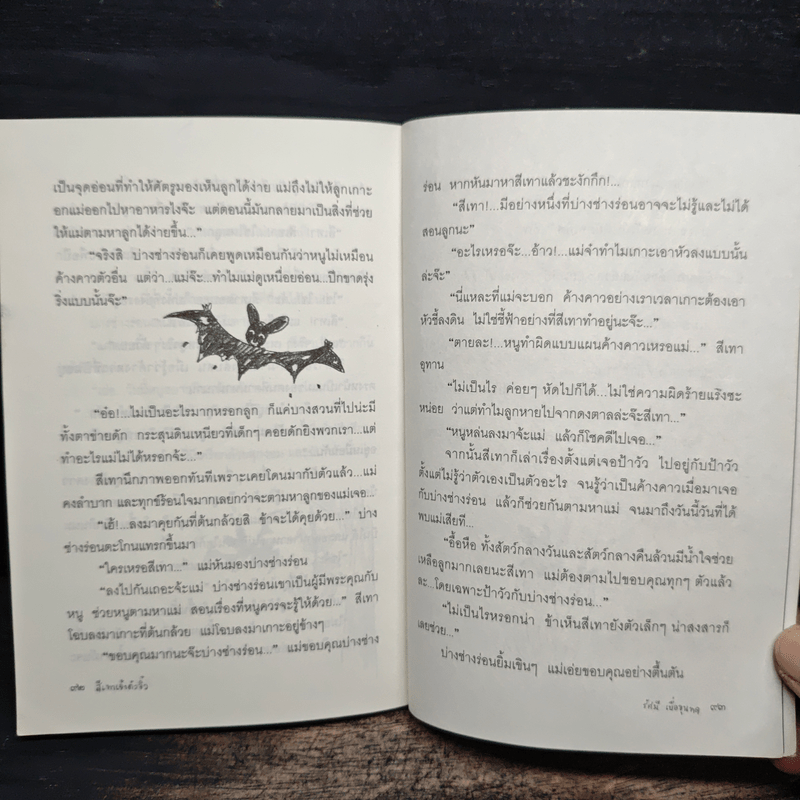 เป็นจุดอ่อนที่ทำให้ศัตรูมองเห็นลูกได้ง่าย แม่ถึงไม่ให้ลูกเกาะ
อกแม่ออกไปหาอาหารไงจ๊ะ แต่ตอนนี้มันกลายมาเป็นสิ่งที่ช่วย
ให้แม่ตามหาลูกได้ง่ายขึ้น...”
“จริงสิ บ่างช่างร่อนก็เคยพูดเหมือนกันว่าหนูไม่เหมือน
ค้างคาวตัวอื่น แต่ว่า...แม่จ๊ะ...ทำไมแม่ดูเหนื่อยอ่อน...ปีกขาดรุ่ง
ริ่งแบบนั้นจ๊ะ”
“อ๋อ!...ไม่เป็นอะไรมากหรอกลูก ก็แค่บางสวนที่ไปน่ะมี
ทั้งตาข่ายดัก กระสุนดินเหนียวที่เด็กๆ คอยดักยิงพวกเรา...แต่
ทำอะไรแม่ไม่ได้หรอกจ้ะ...”
สีเทานึกภาพออกทันทีเพราะเคยโดนมากับตัวแล้ว...แม่
คงลำบาก และทุกข์ร้อนใจมากเลยกว่าจะตามหาลูกของแม่เจอ...
“เฮ้!...ลงมาคุยกันที่ต้นกล้วยสิ ข้าจะได้คุยด้วย...” บ่าง
ช่างร่อนตะโกนแทรกขึ้นมา
“ใครเหรอสีเทา...” แม่หันมองบ่างช่างร่อน
“ลงไปกันเถอะจ้ะแม่ บ่างช่างร่อนเขาเป็นผู้มีพระคุณกับ
หนู ช่วยหนูตามหาแม่ สอนเรื่องที่หนูควรจะรู้ให้ด้วย...” สีเทา
โฉบลงมาเกาะที่ต้นกล้วย แม่โฉบลงมาเกาะอยู่ข้างๆ
“ขอบคุณมากนะจ๊ะบ่างช่างร่อน...” แม่ขอบคุณบ่างช่าง
๙๒ สีเทาเจ้าตัวจิ๋ว
ร่อน หากหันมาหาสีเทาแล้วชะงักกึก!...
“สีเทา!...มีอย่างหนึ่งที่บ่างช่างร่อนอาจจะไม่รู้และไม่ได้
สอนลูกนะ”
“อะไรเหรอจ๊ะ...อ้าว!...แม่จ๋าทำไมเกาะเอาหัวลงแบบนั้น
ล่ะจ๊ะ”
“นี่แหละที่แม่จะบอก ค้างคาวอย่างเราเวลาเกาะต้องเอา
หัวชี้ลงดิน ไม่ใช่ชี้ฟ้าอย่างที่สีเทาทำอยู่นะจ๊ะ...”
“ตายละ!...หนูทำผิดแบบแผนค้างคาวเหรอแม่...” สีเทา
อุทาน
“ไม่เป็นไร ค่อยๆ หัดไปก็ได้...ไม่ใช่ความผิดร้ายแรงซะ
หน่อย ว่าแต่ทำไมลูกหายไปจากดงตาลล่ะจ๊ะสีเทา...”
“หนูหล่นลงมาจ้ะแม่ แล้วก็โชคดีไปเจอ...”
จากนั้นสีเทาก็เล่าเรื่องตั้งแต่เจอป้าวัว ไปอยู่กับป้าวัว
ตั้งแต่ไม่รู้ว่าตัวเองเป็นตัวอะไร จนรู้ว่าเป็นค้างคาวเมื่อมาเจอ
กับบ่างช่างร่อน แล้วก็ช่วยกันตามหาแม่ จนมาถึงวันนี้วันที่ได้
พบแม่เสียที...
“อื้อหือ ทั้งสัตว์กลางวันและสัตว์กลางคืนล้วนมีน้ำใจช่วย
เหลือลูกมากเลยนะสีเทา แม่ต้องตามไปขอบคุณทุกๆ ตัวแล้ว
ละ...โดยเฉพาะป้าวัวกับบ่างช่างร่อน...”
“ไม่เป็นไรหรอกน่า ข้าเห็นสีเทายังตัวเล็กๆ น่าสงสารก็
เลยช่วย...”
บ่างช่างร่อนยิ้มเขินๆ แม่เอ่ยขอบคุณอย่างตื้นตัน
๙๓